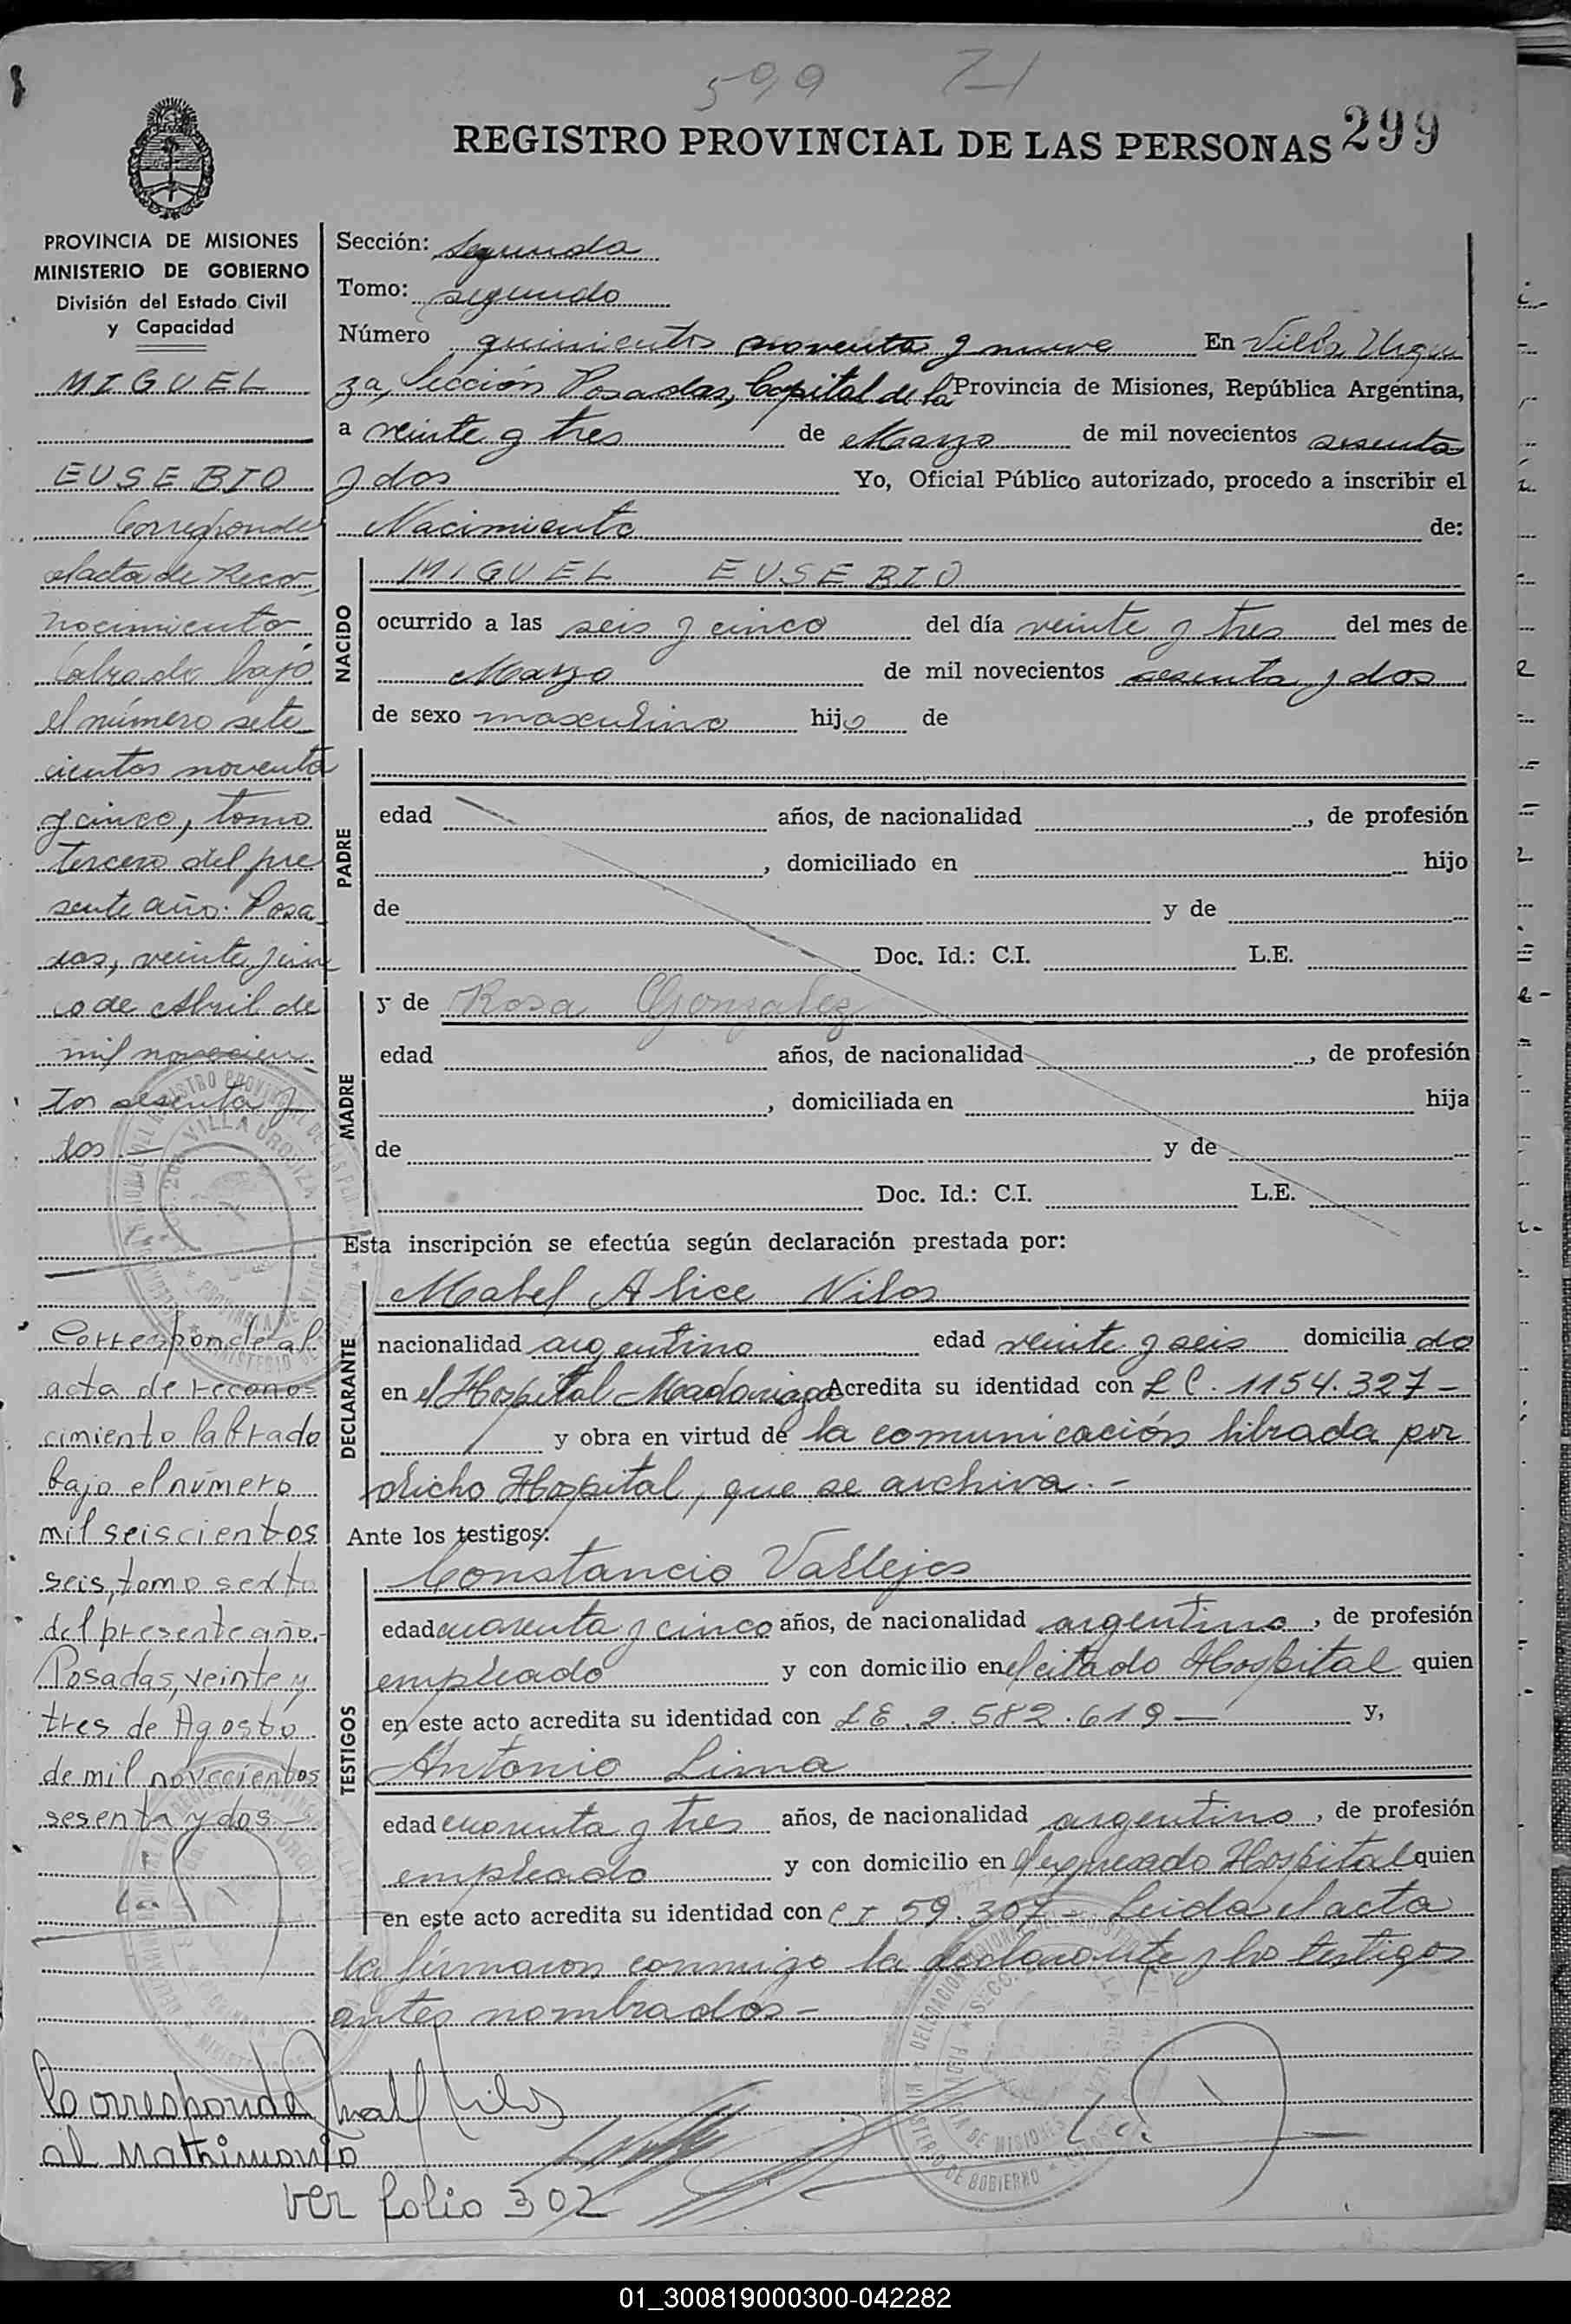 599 71
REGISTRO PROVINCIAL DE LAS PERSONAS 299
PROVINCIA DE MISIONES
MINISTERIO DE GOBIERNO
División del Estado Civil
y Capacidad
MIGUEL
EUSEBIO
Corresponde
al acta de Reco-
nocimiento
labrada bajo
el número sete-
cientos noventa
y cinco, tomo
tercero del pre
sente año. Posa-
das, veinte y cin
co de Abril de
mil novecien-
tos sesenta y
dos.-
Corresponde al
acta de recono-
cimiento labrado
bajo el número
mil seiscientos
seis, tomo sexto
del presente año.-
Posadas, veinte y
tres de Agosto
de mil novecientos
sesenta y dos.-
Corresponde
al Matrimonio
ver folio 302
Sección: Segunda
Tomo: segundo
Número quinientos noventa y nueve En Villa Urqui
za, Sección Posadas, Capital de la Provincia de Misiones, República Argentina,
a veinte y tres de Marzo de mil novecientos sesenta
y dos Yo, Oficial Público autorizado, procedo a inscribir el
Nacimiento de:
NACIDO
MIGUEL EUSEBIO
ocurrido a las seis y cinco del día veinte y tres del mes de
Marzo de mil novecientos sesenta y dos
de sexo masculino hijo de
PADRE
edad años, de nacionalidad , de profesión
, domiciliado en hijo
de y de
Doc. Id.: C.I. L.E.
MADRE
y de Rosa Gonzalez
edad años, de nacionalidad , de profesión
, domiciliada en hija
de y de
Doc. Id.: C.I. L.E.
Esta inscripción se efectúa según declaración prestada por:
DECLARANTE
Mabel Alice Nilos
nacionalidad argentina edad veinte y seis domicilia do
en el Hospital Madariaga Acredita su identidad con L C. 1154.327-
y obra en virtud de la comunicación librada por
dicho Hospital, que se archiva.-
Ante los testigos:
TESTIGOS
Constancio Vallejos
edad cuarenta y cinco años, de nacionalidad argentino, de profesión
empleado y con domicilio en el citado Hospital quien
en este acto acredita su identidad con L E. 2.582.619 — y,
Antonio Lima
edad cuarenta y tres años, de nacionalidad argentino, de profesión
empleado y con domicilio en el expresado Hospital quien
en este acto acredita su identidad con C I 59.307- Leida el acta
la firmaron conmigo la declarante y los testigos
antes nombrados-
01_300819000300-042282